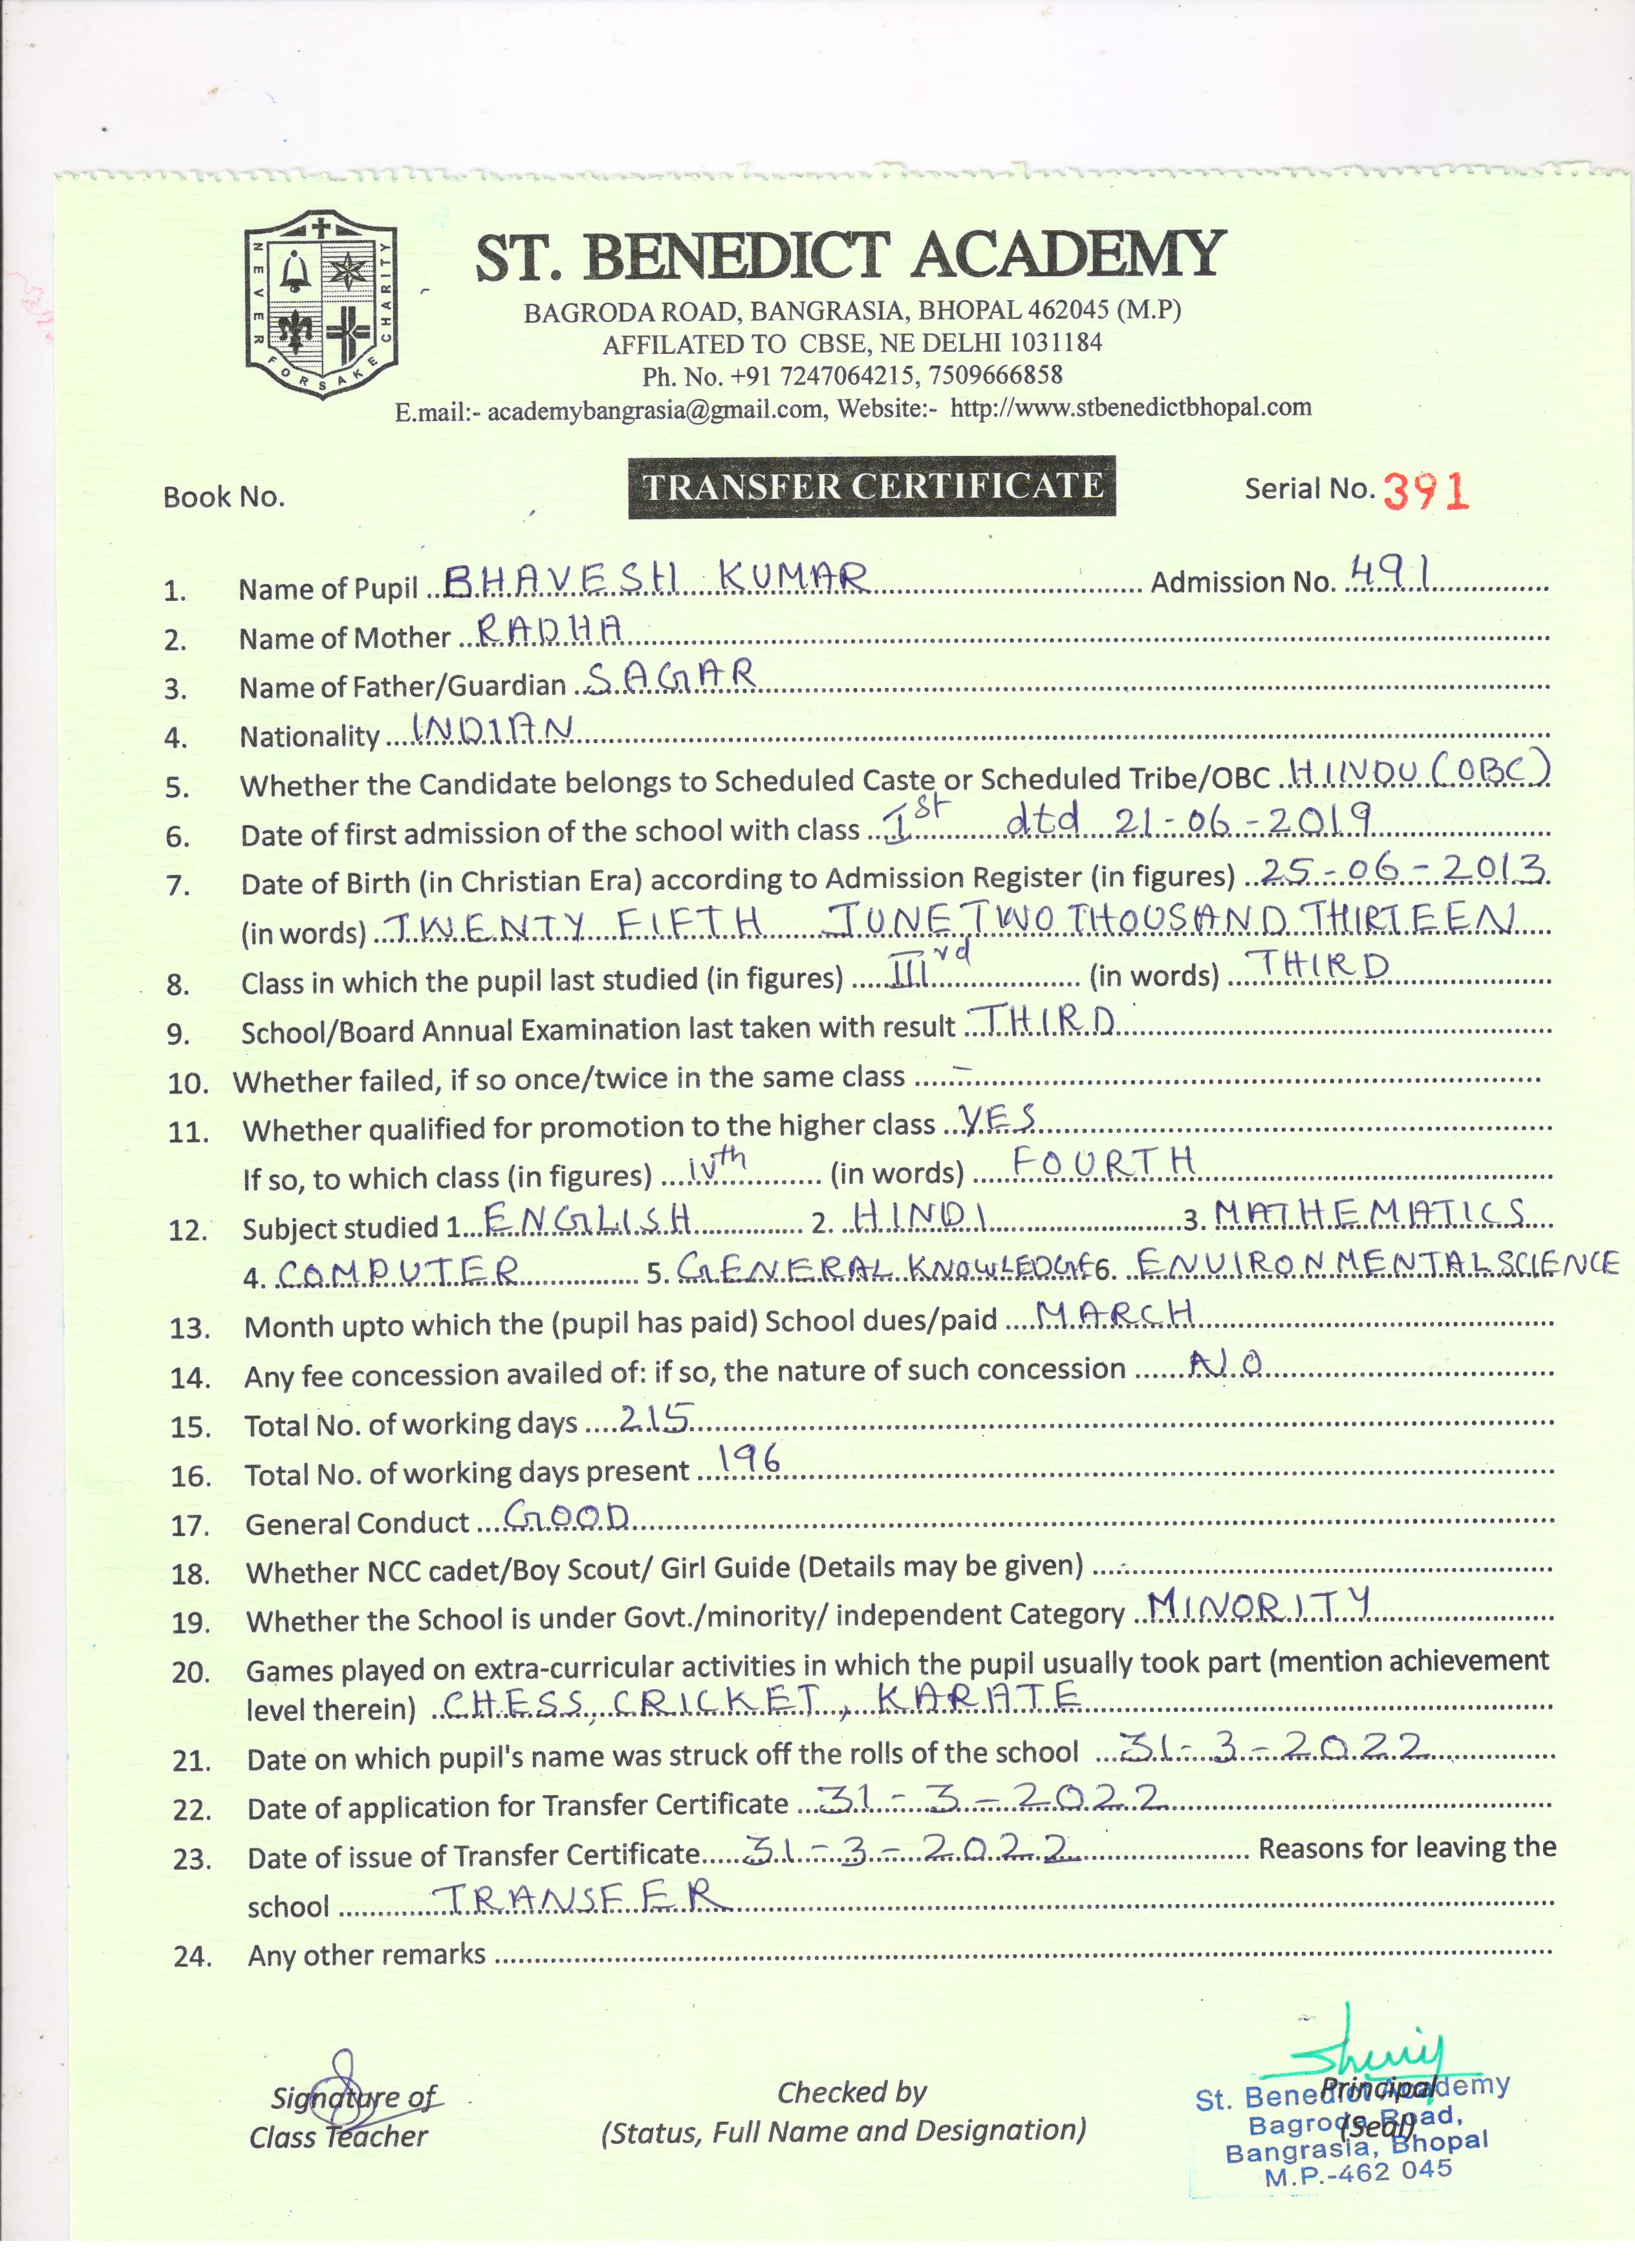 NEVER FORSAKE CHARITY
ST. BENEDICT ACADEMY
BAGRODA ROAD, BANGRASIA, BHOPAL 462045 (M.P)
AFFILATED TO CBSE, NE DELHI 1031184
Ph. No. +91 7247064215, 7509666858
E.mail:- academybangrasia@gmail.com, Website:- http://www.stbenedictbhopal.com
Book No. TRANSFER CERTIFICATE Serial No. 391
1. Name of Pupil BHAVESH KUMAR Admission No. 491
2. Name of Mother RADHA
3. Name of Father/Guardian SAGAR
4. Nationality INDIAN
5. Whether the Candidate belongs to Scheduled Caste or Scheduled Tribe/OBC HINDU (OBC)
6. Date of first admission of the school with class Ist dtd 21-06-2019
7. Date of Birth (in Christian Era) according to Admission Register (in figures) 25-06-2013
(in words) TWENTY FIFTH JUNE TWO THOUSAND THIRTEEN
8. Class in which the pupil last studied (in figures) IIIrd (in words) THIRD
9. School/Board Annual Examination last taken with result THIRD
10. Whether failed, if so once/twice in the same class –
11. Whether qualified for promotion to the higher class YES
If so, to which class (in figures) IVth (in words) FOURTH
12. Subject studied 1. ENGLISH 2. HINDI 3. MATHEMATICS
4. COMPUTER 5. GENERAL KNOWLEDGE 6. ENVIRONMENTAL SCIENCE
13. Month upto which the (pupil has paid) School dues/paid MARCH
14. Any fee concession availed of: if so, the nature of such concession NO
15. Total No. of working days 215
16. Total No. of working days present 196
17. General Conduct GOOD
18. Whether NCC cadet/Boy Scout/ Girl Guide (Details may be given) -
19. Whether the School is under Govt./minority/ independent Category MINORITY
20. Games played on extra-curricular activities in which the pupil usually took part (mention achievement
level therein) CHESS, CRICKET, KARATE
21. Date on which pupil's name was struck off the rolls of the school 31-3-2022
22. Date of application for Transfer Certificate 31-3-2022
23. Date of issue of Transfer Certificate 31-3-2022 Reasons for leaving the
school TRANSFER
24. Any other remarks
Signature of
Class Teacher
Checked by
(Status, Full Name and Designation)
Principal
(Seal)
St. Benedict Academy
Bagroda Road,
Bangrasia, Bhopal
M.P.-462 045